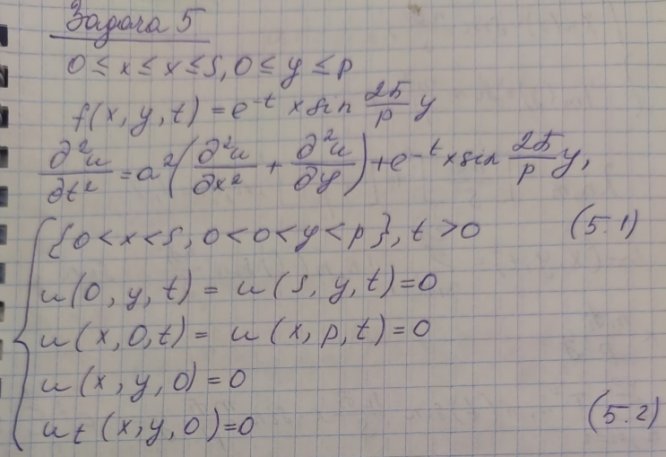 Задача 5
0 ≤ x ≤ x ≤ s, 0 ≤ y ≤ p
f(x, y, t) = e^{-t} x sin \frac{2π}{p} y
\frac{∂²u}{∂t²} = a² (\frac{∂²u}{∂x²} + \frac{∂²u}{∂y}) + e^{-t} x sin \frac{2π}{p} y,
{0 < x < s, 0 < 0 < y < p}, t > 0 (5.1)
u(0, y, t) = u(s, y, t) = 0
u(x, 0, t) = u(x, p, t) = 0
u(x, y, 0) = 0
u_t(x, y, 0) = 0 (5.2)